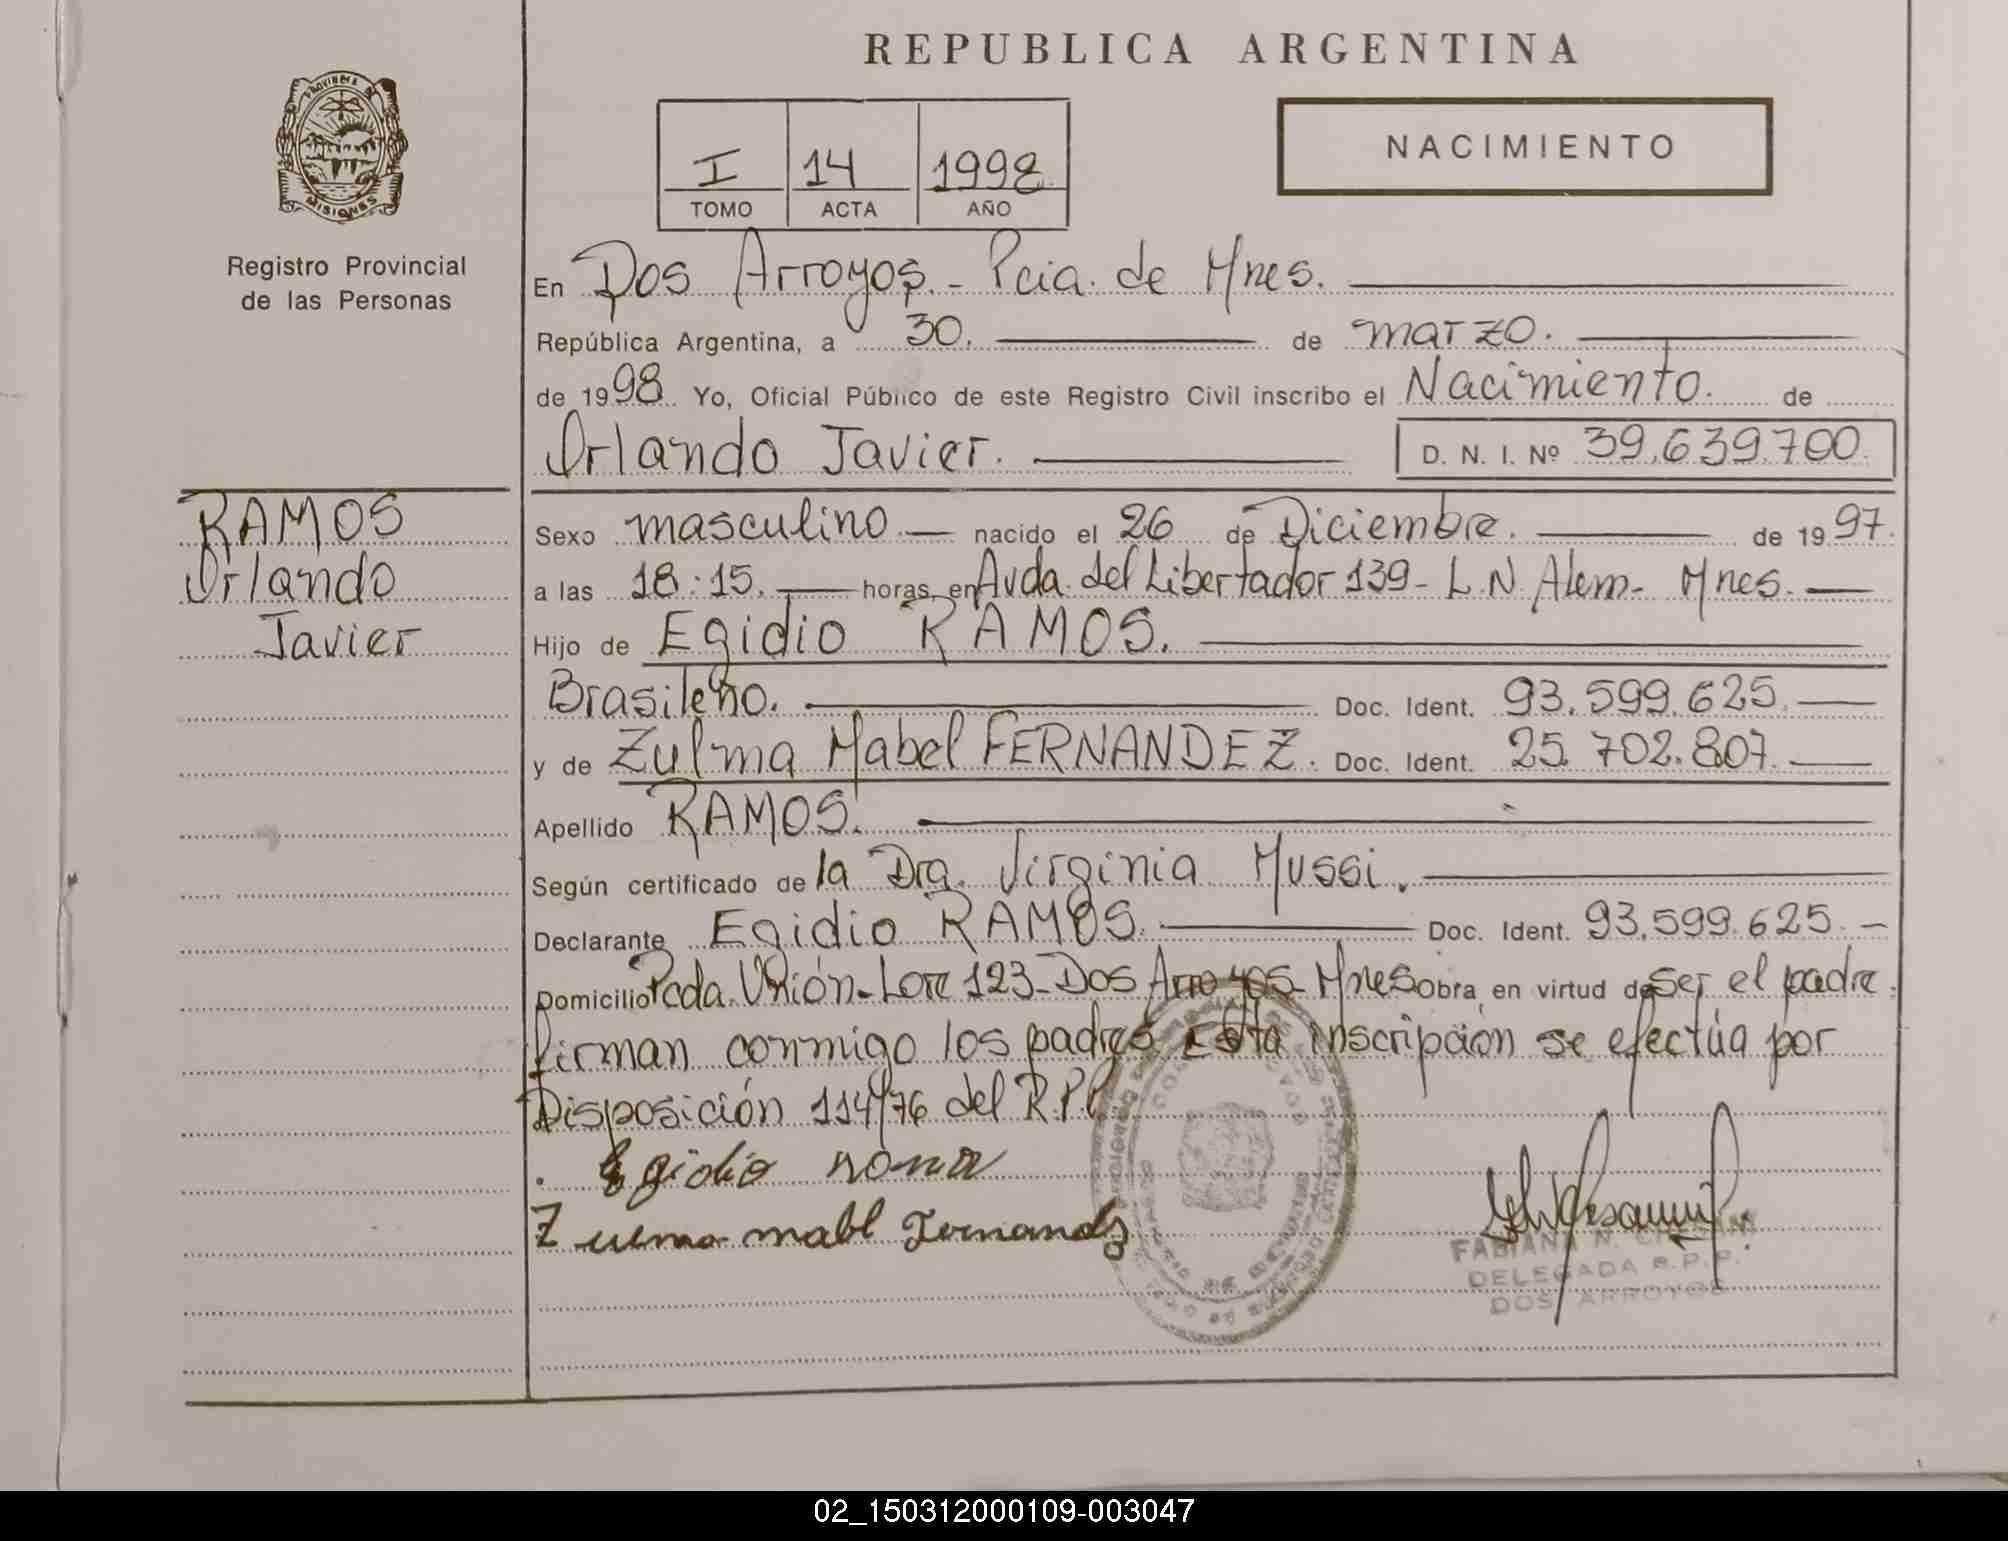 REPUBLICA ARGENTINA
PROVINCIA DE
MISIONES
Registro Provincial
de las Personas
I 14 1998
TOMO ACTA AÑO
NACIMIENTO
En Dos Arroyos.- Pcia. de Mnes.
República Argentina, a 30. de marzo.
de 1998 Yo, Oficial Público de este Registro Civil inscribo el Nacimiento. de
Orlando Javier. D. N. I. Nº 39.639.700.
RAMOS
Orlando
Javier
Sexo masculino.— nacido el 26 de Diciembre. de 1997.
a las 18:15.— horas, en Avda. del Libertador 139- L.N. Alem- Mnes.—
Hijo de Egidio RAMOS.
Brasileño. Doc. Ident. 93.599.625.—
y de Zulma Mabel FERNANDEZ. Doc. Ident. 25.702.807.—
Apellido RAMOS.
Según certificado de la Dra. Virginia Mussi.
Declarante Egidio RAMOS. Doc. Ident. 93.599.625.-
Domicilio Pcda. Unión-Lote 123-Dos Arroyos-Mnes Obra en virtud de ser el padre.
firman conmigo los padres Esta inscripción se efectúa por
Disposición 114/76 del R.P.P.
Egidio
Zulma mabl Fernandz
FABIANA N.
DELEGADA R.P.P.
DOS ARROYOS
02_150312000109-003047